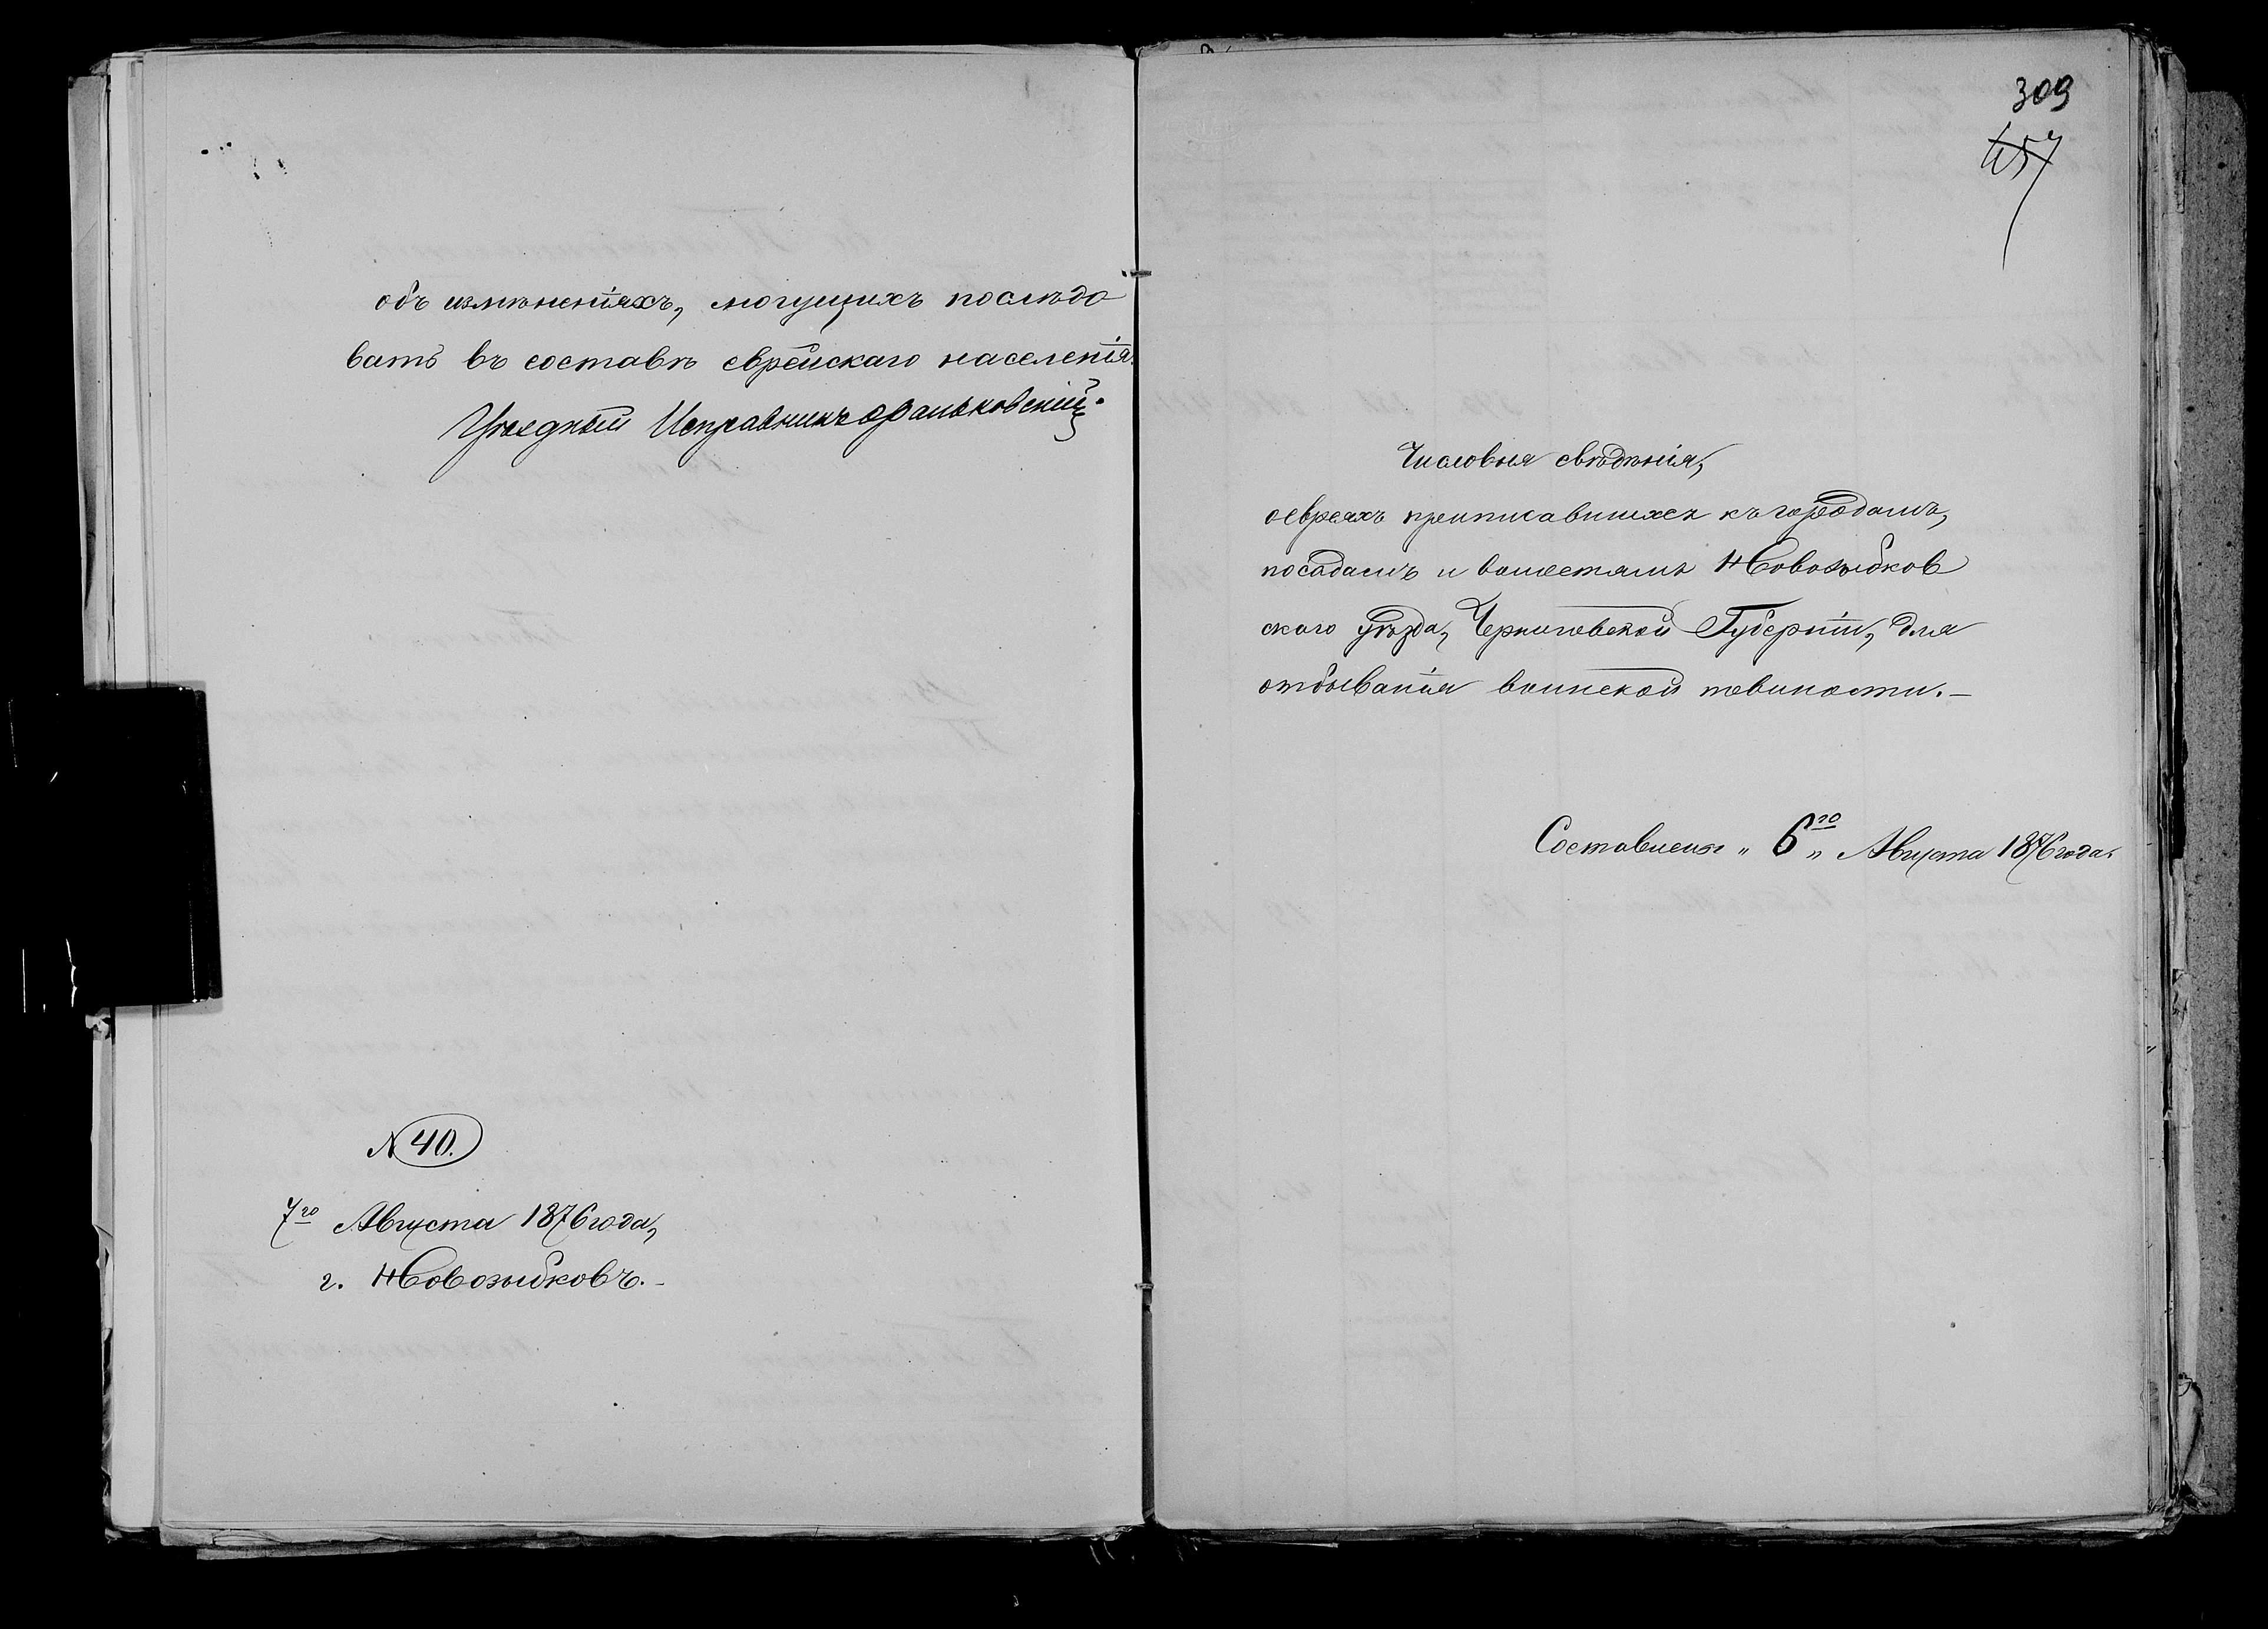 объ измѣненіяхъ, могущихъ послѣдо
вать въ составѣ еврейскаго населенія.
Уѣздный Исправникъ
N 40.
7го Августа 1876 года,
г. Новозыбковъ.-
309
457
Числовыя свѣдѣнія,
о евреяхъ приписавшихся къ городамъ,
посадамъ и волостямъ Новозыбков
скаго уѣзда, Черниговской Губерніи, для
отбыванія воинской повиности.-
Составлены „ 6го „ Августа 1876 года.